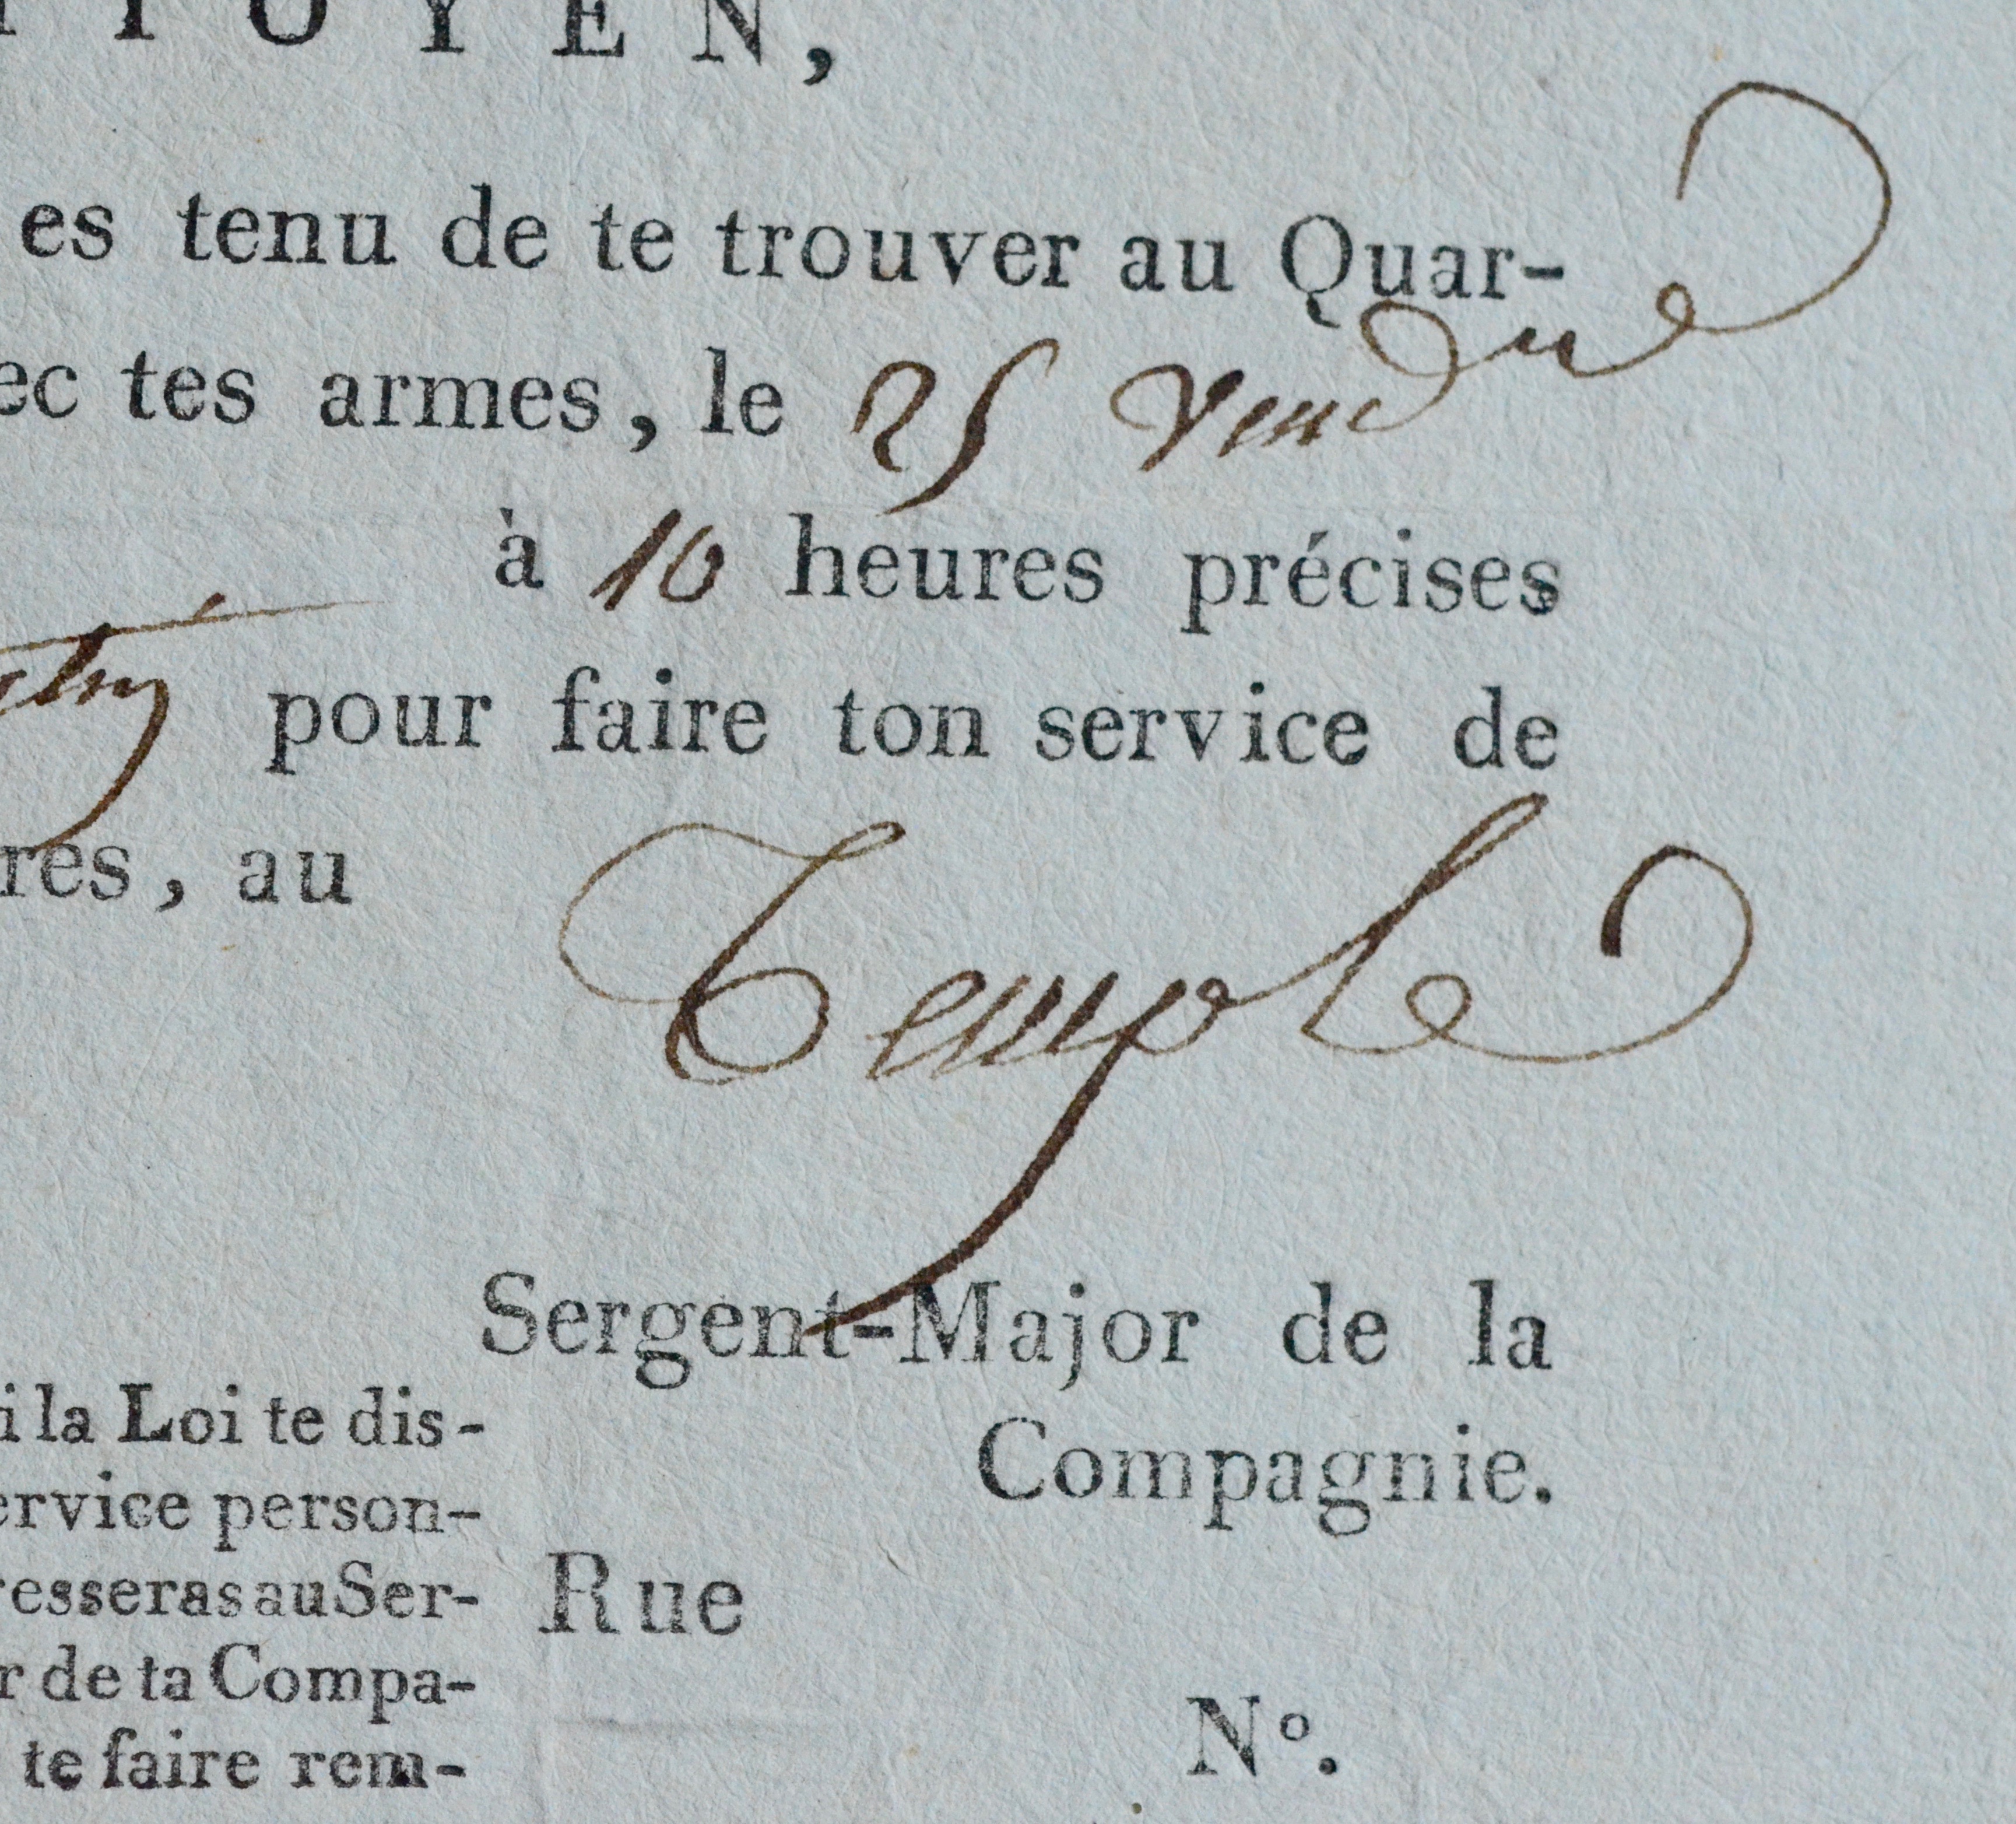 ITOYEN,
es tenu de te trouver au Quar-
ec tes armes, le 25 vend
à 10 heures précises
pour faire ton service de
res, au Temple
Sergent-Major de la
Compagnie.
i la Loi te dis-
ervice person-
esseras au Ser-
r de ta Compa-
te faire rem-
Rue
N°.